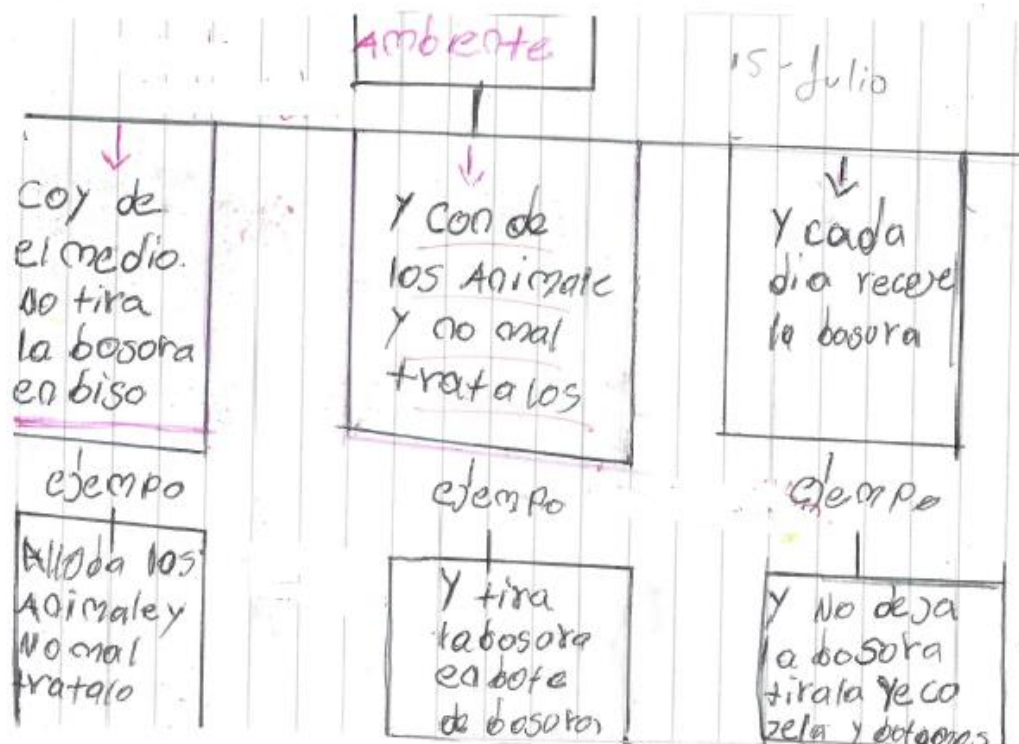 Ambiente
15-Julio
coy de
el medio.
No tira
la bosora
en biso
Y con de
los Animale
Y no mal
tratalos
Y cada
dia recoje
la basura
ejempo
ejempo
ejempo
Alloda los
Animale y
No mal
tratalo
Y tira
la bosora
en bote
de bosora
Y No deja
la bosora
tirala Yeco
jela y botamos